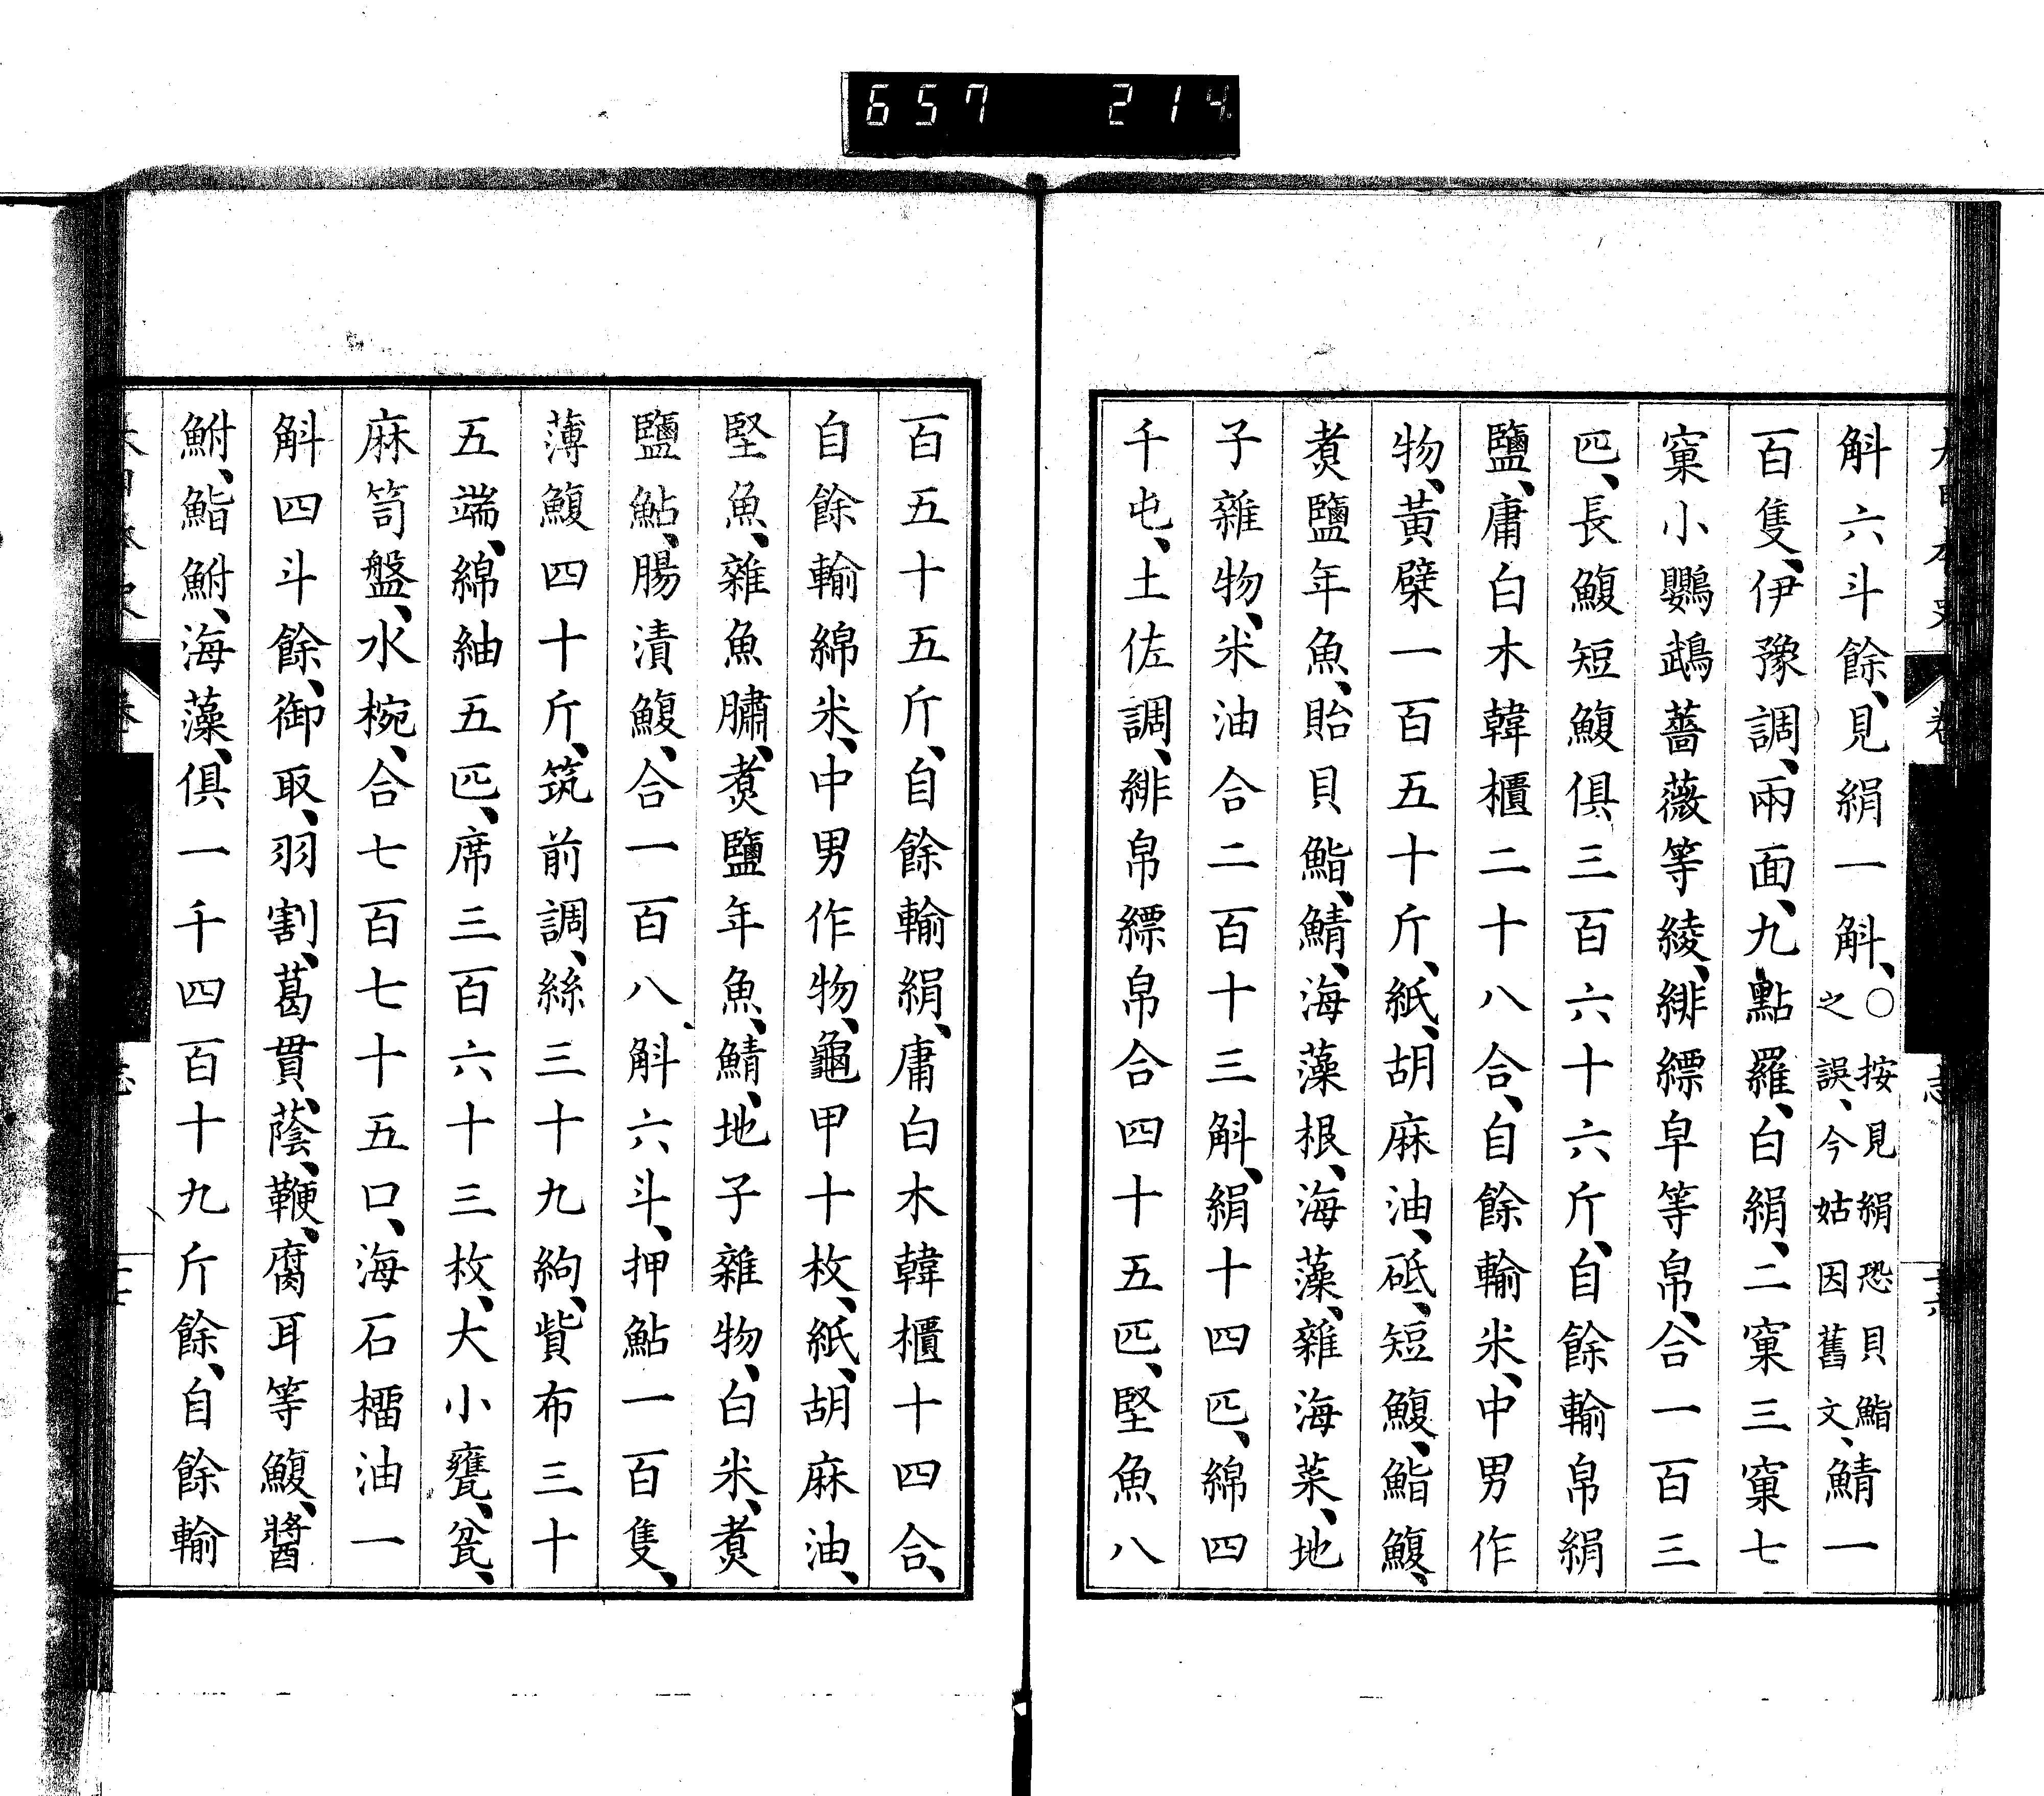 657 214
斛六斗餘、見絹一斛、○按見絹恐貝鮨之誤、今姑因舊文、鯖一
百隻、伊豫調、兩面、九點羅、白絹、二窠三窠七
窠小鸚鵡薔薇等綾、緋縹皁等帛、合一百三
匹、長鰒短鰒俱三百六十六斤、自餘輸帛絹
鹽、庸白木韓櫃二十八合、自餘輸米、中男作
物、黃檗一百五十斤、紙、胡麻油、砥、短鰒、鮨鰒、
煑鹽年魚、貽貝鮨、鯖、海藻根、海藻、雜海菜、地
子雜物、米油合二百十三斛、絹十四匹、綿四
千屯、土佐調、緋帛縹帛合四十五匹、堅魚八
百五十五斤、自餘輸絹、庸白木韓櫃十四合、
自餘輸綿米、中男作物、龜甲十枚、紙、胡麻油、
堅魚、雜魚膅、煑鹽年魚、鯖、地子雜物、白米、煑
鹽鮎、腸漬鰒、合一百八斛六斗、押鮎一百隻、
薄鰒四十斤、筑前調、絲三十九絇、貲布三十
五端、綿紬五匹、席三百六十三枚、大小甕、瓫、
麻笥盤、水椀、合七百七十五口、海石榴油一
斛四斗餘、御取、羽割、葛貫、蔭、鞭、腐耳等鰒、醬
鮒、鮨鮒、海藻、俱一千四百十九斤餘、自餘輸